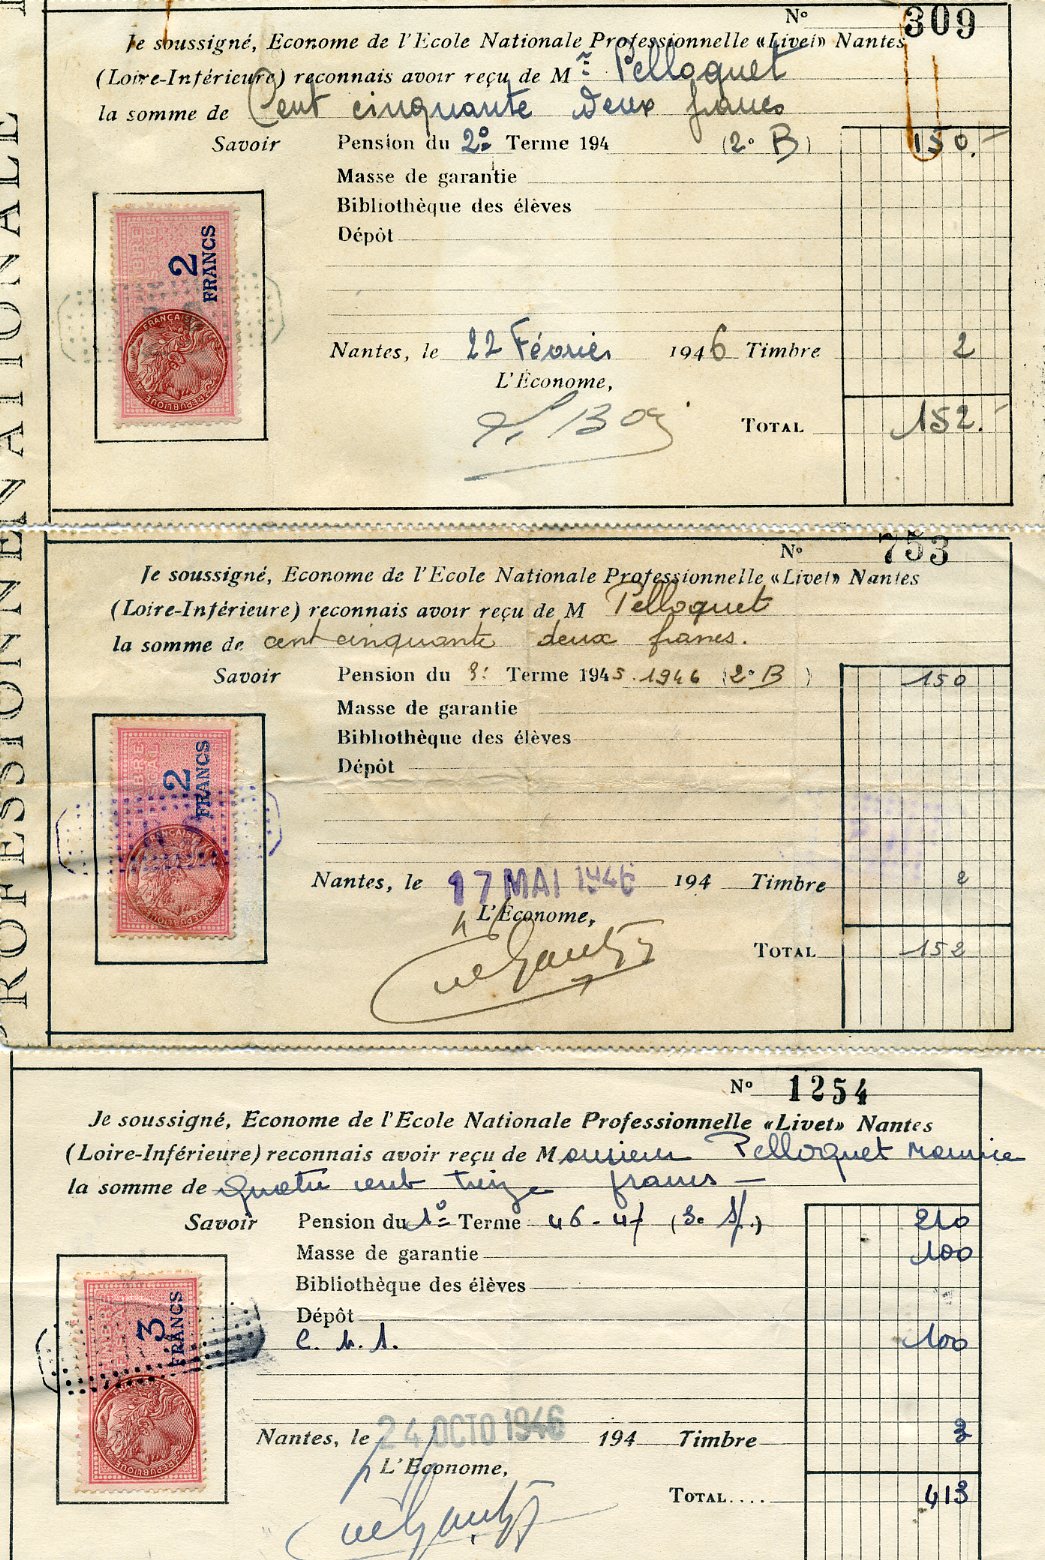 NATIONALE
PROFESSIONNE
N° 309
Je soussigné, Econome de l'Ecole Nationale Professionnelle «Livet» Nantes
(Loire-Inférieure) reconnais avoir reçu de Mr Pelloquet
la somme de Cent cinquante deux francs
Savoir Pension du 2e Terme 194 (2° B) 150.
Masse de garantie
Bibliothèque des élèves
Dépôt
2
FRANCS
FRANÇAISE
Nantes, le 22 Février 1946 Timbre 2
L'Économe,
TOTAL 152.
N° 753
Je soussigné, Econome de l'Ecole Nationale Professionnelle «Livet» Nantes
(Loire-Inférieure) reconnais avoir reçu de M Pelloquet
la somme de cent cinquante deux francs.
Savoir Pension du 3e Terme 1945.1946 (2° B) 150
Masse de garantie
Bibliothèque des élèves
Dépôt
2
FRANCS
Nantes, le 17 MAI 1946 194 Timbre 2
L'Économe,
TOTAL 152
N° 1254
Je soussigné, Econome de l'Ecole Nationale Professionnelle «Livet» Nantes
(Loire-Inférieure) reconnais avoir reçu de Monsieur Pelloquet Maurice
la somme de Quatre cent treize francs —
Savoir Pension du 1° Terme 46-47 (3e Sp.) 210
Masse de garantie 100
Bibliothèque des élèves
Dépôt
C. b. 1. 100
3
FRANCS
Nantes, le 24 OCTO 1946 194 Timbre 3
L'Économe,
TOTAL.... 413